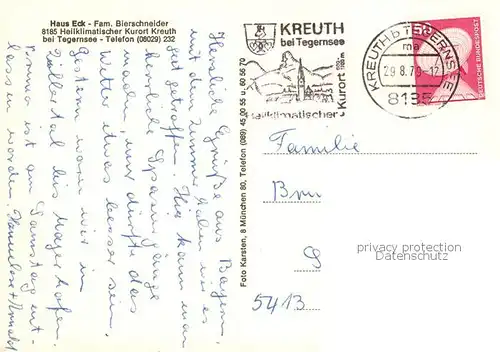 Haus Eck - Fam. Bierschneider
8185 Heilklimatischer Kurort Kreuth
bei Tegernsee - Telefon (08029) 232
KREUTH
bei Tegernsee
heilklimatischer Kurort
800-
KREUTH b TEGERNSEE
ma
29.8.79-12
8185
DEUTSCHE BUNDESPOST
Herzliche Grüße aus Bayern,
mit dem Zimmer haben wir es
gut getroffen. Hier kann man
herrliche Spaziergänge
machen, nur dürfte das
Wetter etwas besser sein.
Gestern waren wir im
Zillertal bis Mayrhofen.
wir am Samstag ent-
lassen worden. Hannelore +
Foto Karsten, 8 München 80, Telefon (089) 45 00 55 u. 68 56 70
Familie
Bru
5413
privacy protection
Veikkos.com